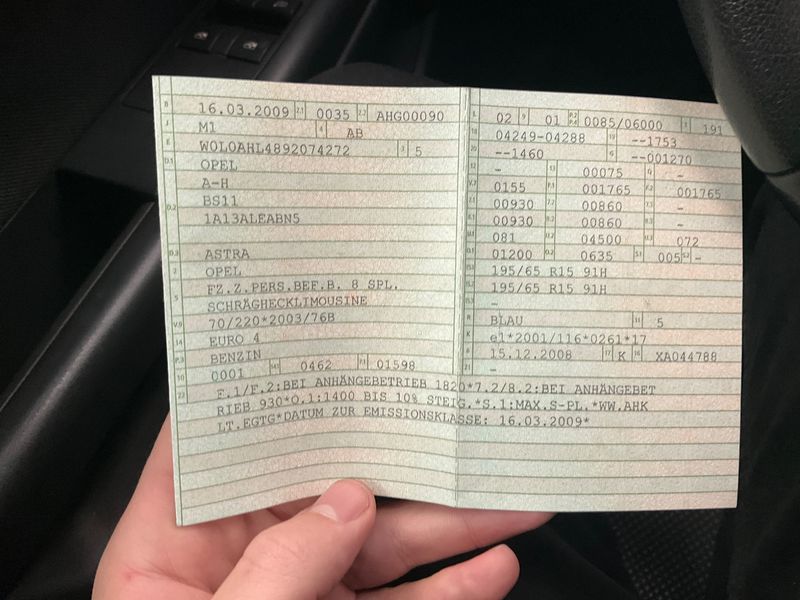 B 16.03.2009 2.1 0035 2.2 AHG00090
J M1 4 AB
E W0L0AHL4892074272 3 5
D.1 OPEL
A-H
D.2 BS11
1A13ALEABN5
D.3 ASTRA
2 OPEL
5 FZ.Z.PERS.BEF.B. 8 SPL.
SCHRÄGHECKLIMOUSINE
V.9 70/220*2003/76B
14 EURO 4
P.3 BENZIN
10 0001 14.1 0462 P.1 01598
L 02 9 01 P.2 P.4 0085/06000 T 191
18 04249-04288 19 --1753
20 --1460 G --001270
12 - 13 00075 Q -
V.7 0155 F.1 001765 F.2 001765
7.1 00930 7.2 00860 7.3 -
8.1 00930 8.2 00860 8.3 -
U.1 081 U.2 04500 U.3 072
O.1 01200 O.2 0635 S.1 005 S.2 -
15.1 195/65 R15 91H
15.2 195/65 R15 91H
15.3 -
R BLAU 11 5
K e1*2001/116*0261*17
6 15.12.2008 17 K 16 XA044788
21 -
22 F.1/F.2:BEI ANHÄNGEBETRIEB 1820*7.2/8.2:BEI ANHÄNGEBET
RIEB 930*O.1:1400 BIS 10% STEIG.*S.1:MAX.S-PL.*WW.AHK
LT.EGTG*DATUM ZUR EMISSIONSKLASSE: 16.03.2009*